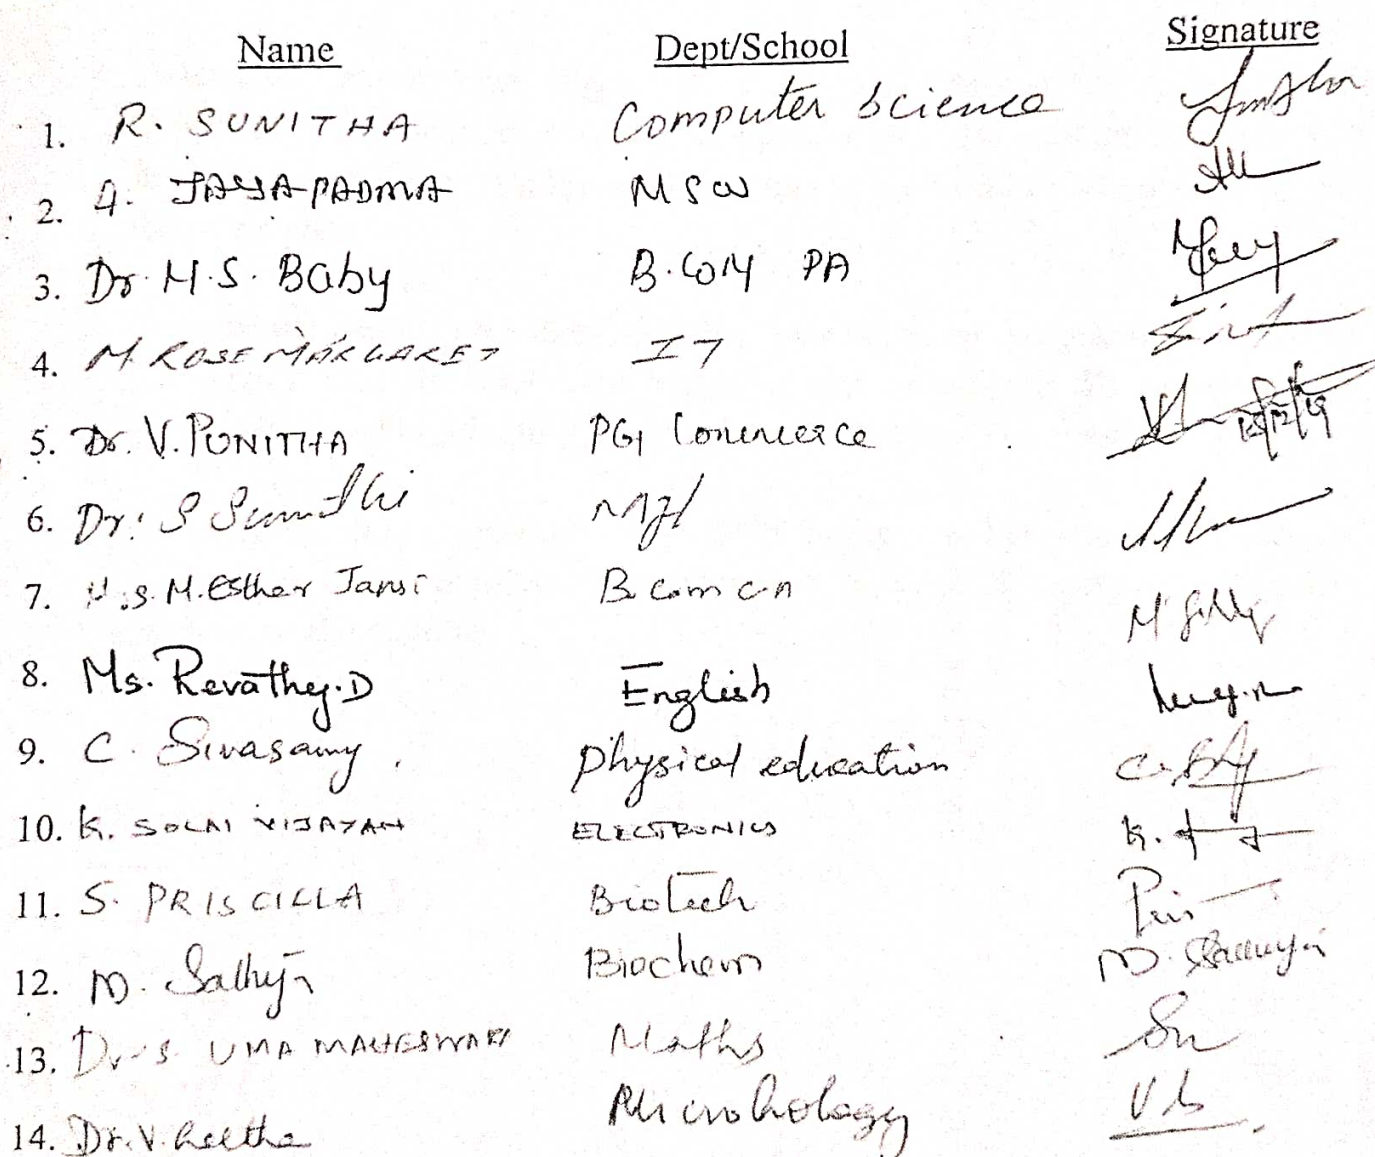 Name Dept/School Signature
1. R. SUNITHA Computer Science
2. A. JAYA PADMA MSW
3. Dr. M.S. Baby B.COM PA
4. M. ROSE MARGARET IT
5. Dr. V. PUNITHA PG Commerce 18/12/19
6. Dr. S
7. M. Esther Jansi B.com CA
8. Ms. Revathy.D English
9. C. Sivasamy. Physical education
10. K. SOLAI VIJAYAN ELECTRONICS K.
11. S. PRISCILLA Biotech Pris
12. M. Sathya Biochem M. Sathya
13. Dr. S. UMA MAHESWARI Maths
14. Dr. V. Geetha Microbiology